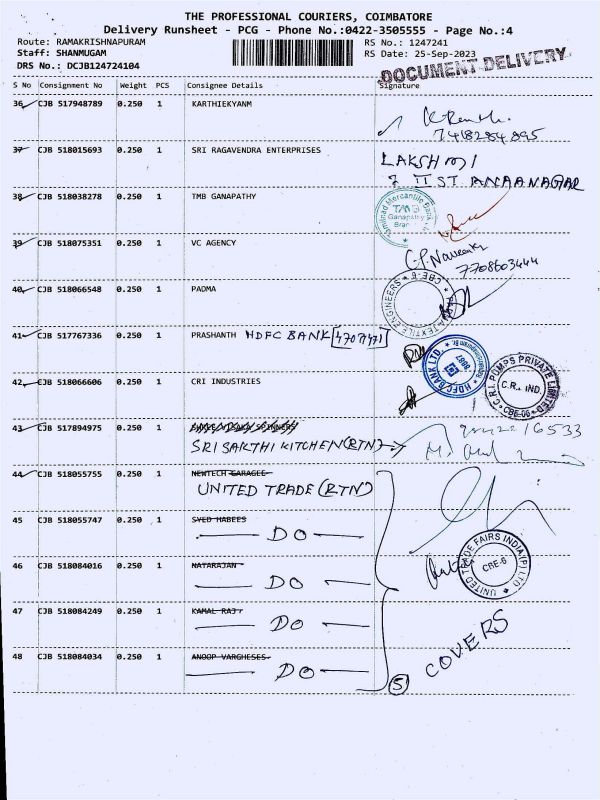 THE PROFESSIONAL COURIERS, COIMBATORE
Delivery Runsheet - PCG - Phone No.:0422-3505555 - Page No.:4
Route: RAMAKRISHNAPURAM RS No.: 1247241
Staff: SHANMUGAM RS Date: 25-Sep-2023
DRS No.: DCJB124724104 DOCUMENT DELIVERY
S No Consignment No Weight PCS Consignee Details Signature
36 CJB 517948789 0.250 1 KARTHIEKYANM
7418284895
37 CJB 518015693 0.250 1 SRI RAGAVENDRA ENTERPRISES LAKSHMI
7 II ST ANAANAGAR
38 CJB 518038278 0.250 1 TMB GANAPATHY
Tamilnad Mercantile Bank
TMB
Ganapathy
Bran
39 CJB 518075351 0.250 1 VC AGENCY
7708603444
40 CJB 518066548 0.250 1 PADMA
TEXTILE ENGINEERS * CBE-6 *
41 CJB 517767336 0.250 1 PRASHANTH HDFC BANK
HDFC BANK LTD.
42 CJB 518066606 0.250 1 CRI INDUSTRIES
C.R.I. PUMPS PRIVATE LIMITED
C.R.. IND.
CBE-06
43 CJB 517894975 0.250 1
SRI SAKTHI KITCHEN (RTN)
44 CJB 518055755 0.250 1 NEWTECH GARAGEE
UNITED TRADE (RTN)
45 CJB 518055747 0.250 1 SYED HABEES
DO
UNITED TRADE FAIRS INDIA (P) LTD
CBE-6
46 CJB 518084016 0.250 1 NATARAJAN
DO
47 CJB 518084249 0.250 1 KAMAL RAJ
DO
COVERS
48 CJB 518084034 0.250 1 ANOOP VARGHESES
DO
5